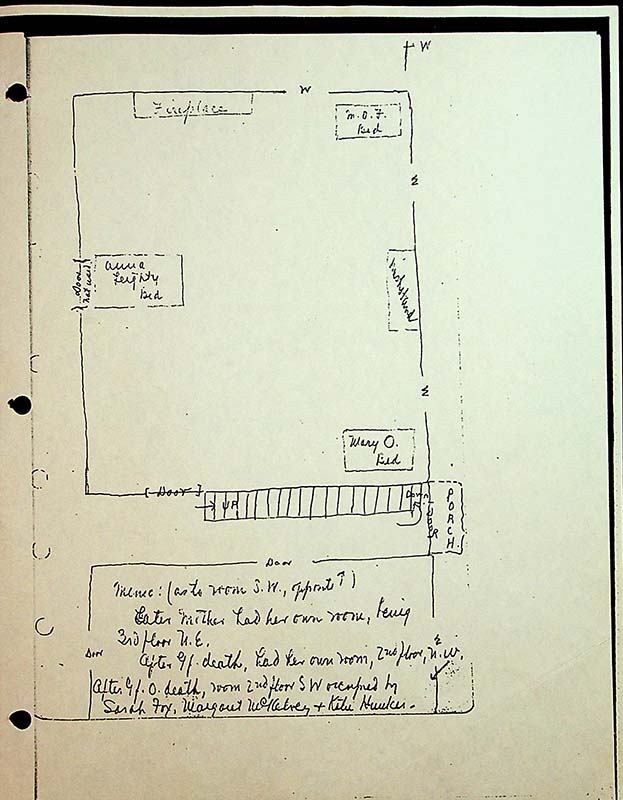 W
W
Fireplace
M.O.F.
Bed
W
Door
not used
Anna
Leighty
Bed
W
Mary O.
Bed
Door
UP
Down
DOOR
PORCH
Door
Memo: (as to room S.W., opposite ↑)
Later Mother had her own room, being
3rd floor N.E.
Door
After Gf. death, had her own room, 2nd floor, N.W.
After Gf. O. death, room 2nd floor SW occupied by
Sarah Fox, Margaret McKelvey + Katie Hunker.